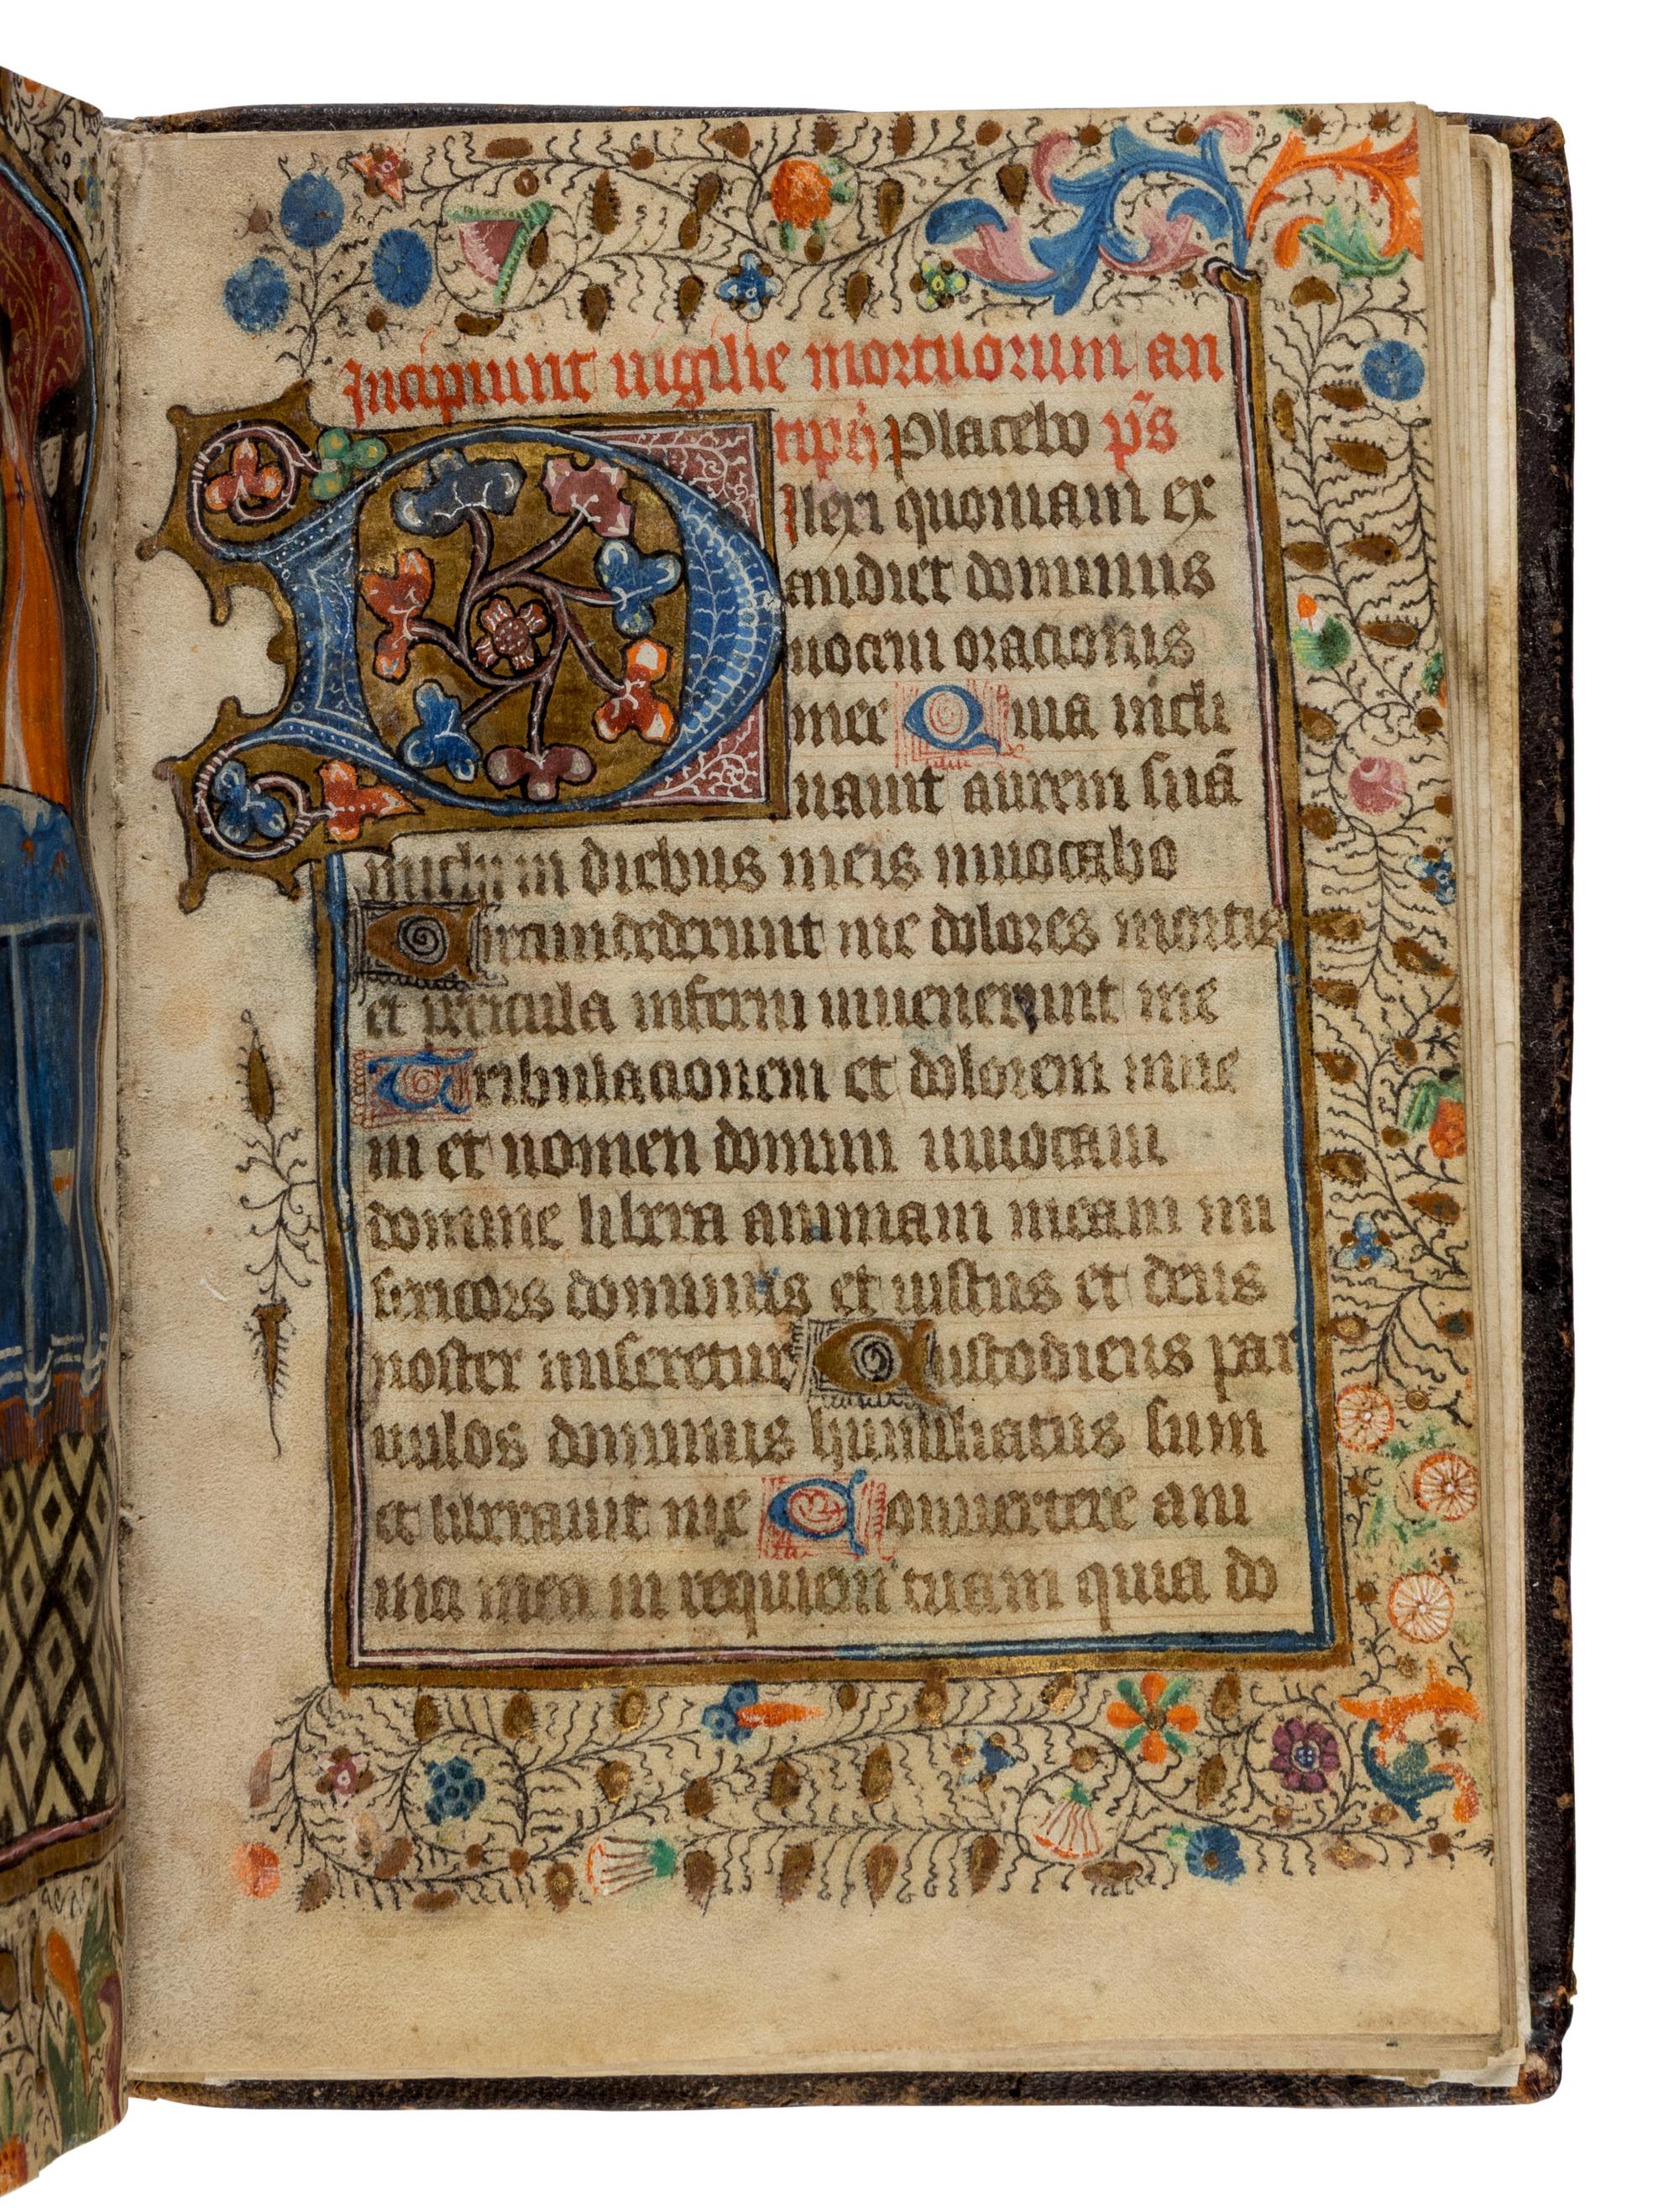 Incipiunt uigilie mortuorum an
tiph̄ Placebo p̄s
Dilexi quoniam ex
audiet dominus
uocem oracionis
mee Quia incli
nauit aurem suā
michi in diebus meis inuocabo
Circumdederunt me dolores mortis
et pericula inferni inuenerunt me
Tribulacionem et dolorem inue
ni et nomen domini inuocaui
domine libera animam meam mi
sericors dominus et iustus et deus
noster miseretur Custodiens par
uulos dominus humiliatus sum
et liberauit me Conuertere ani
ma mea in requiem tuam quia do